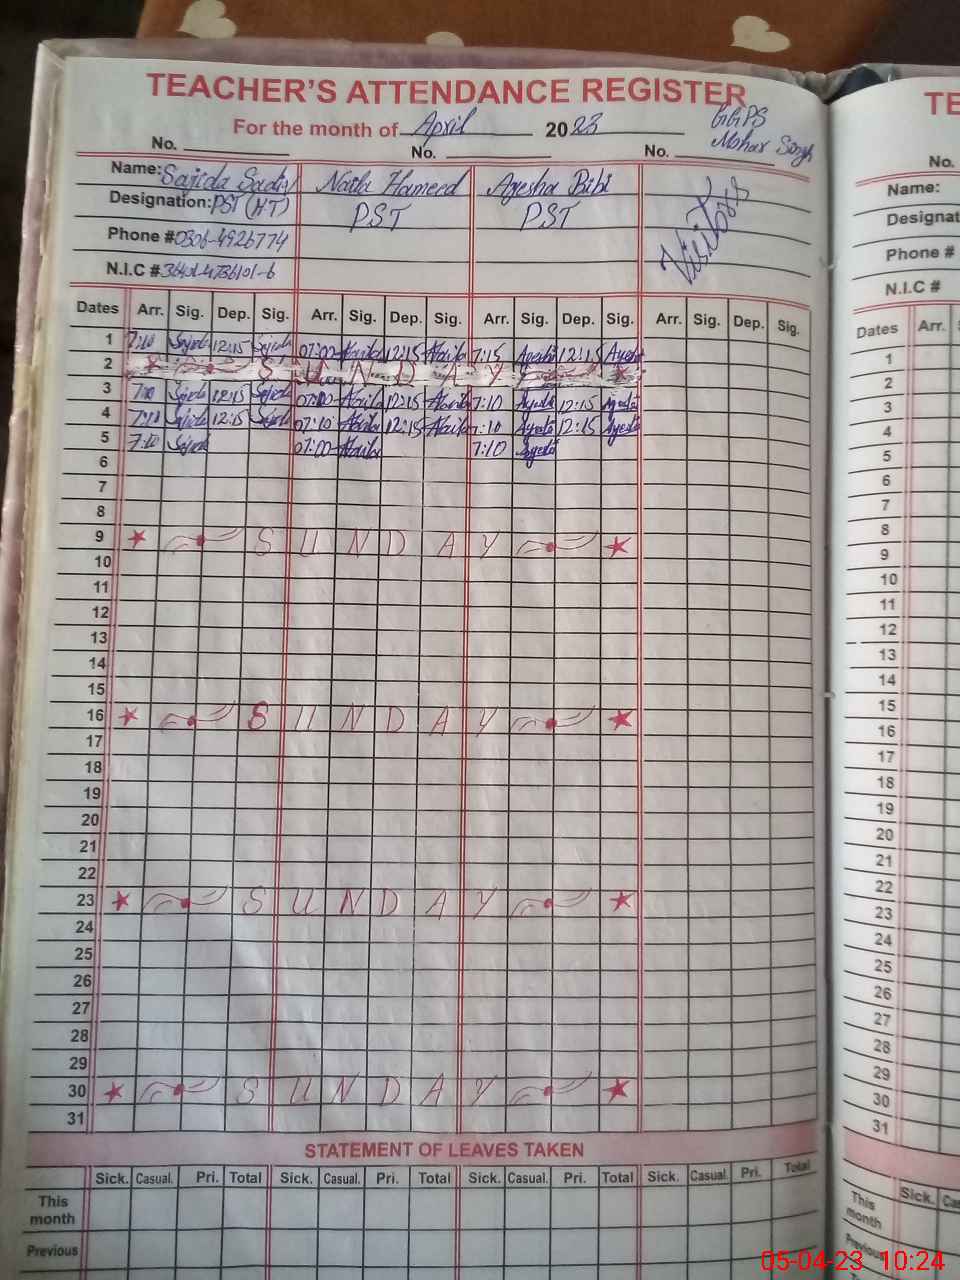 TEACHER'S ATTENDANCE REGISTER
TE
For the month of April 2023
GGPS
Mohar Singh
No. No. No. No.
Name: Sajida Sadiq Naila Hameed Ayesha Bibi Name:
Designation: PST (HT) PST PST Visitors Designat
Phone # 0306-4926774 Phone #
N.I.C # N.I.C #
Dates Arr. Sig. Dep. Sig. Arr. Sig. Dep. Sig. Arr. Sig. Dep. Sig. Arr. Sig. Dep. Sig. Dates Arr.
1 7:10 Sajida 12:15 Sajida 07:00 Naila 12:15 Naila 7:15 Ayesha 12:15 Ayesha 1
2 SUNDAY 2
3 7:10 Sajida 12:15 Sajida 07:00 Naila 12:15 Naila 7:10 Ayesha 12:15 Ayesha 3
4 7:10 Sajida 12:15 Sajida 07:10 Naila 12:15 Naila 7:10 Ayesha 12:15 Ayesha 4
5 7:10 Sajida 07:00 Naila 7:10 Ayesha 5
6 6
7 7
8 8
9 SUNDAY 9
10 10
11 11
12 12
13 13
14 14
15 15
16 SUNDAY 16
17 17
18 18
19 19
20 20
21 21
22 22
23 SUNDAY 23
24 24
25 25
26 26
27 27
28 28
29 29
30 SUNDAY 30
31 31
STATEMENT OF LEAVES TAKEN
Sick. Casual. Pri. Total Sick. Casual. Pri. Total Sick. Casual. Pri. Total Sick. Casual. Pri. Total Sick. Cas
This month This month
Previous Previous
05-04-23 10:24